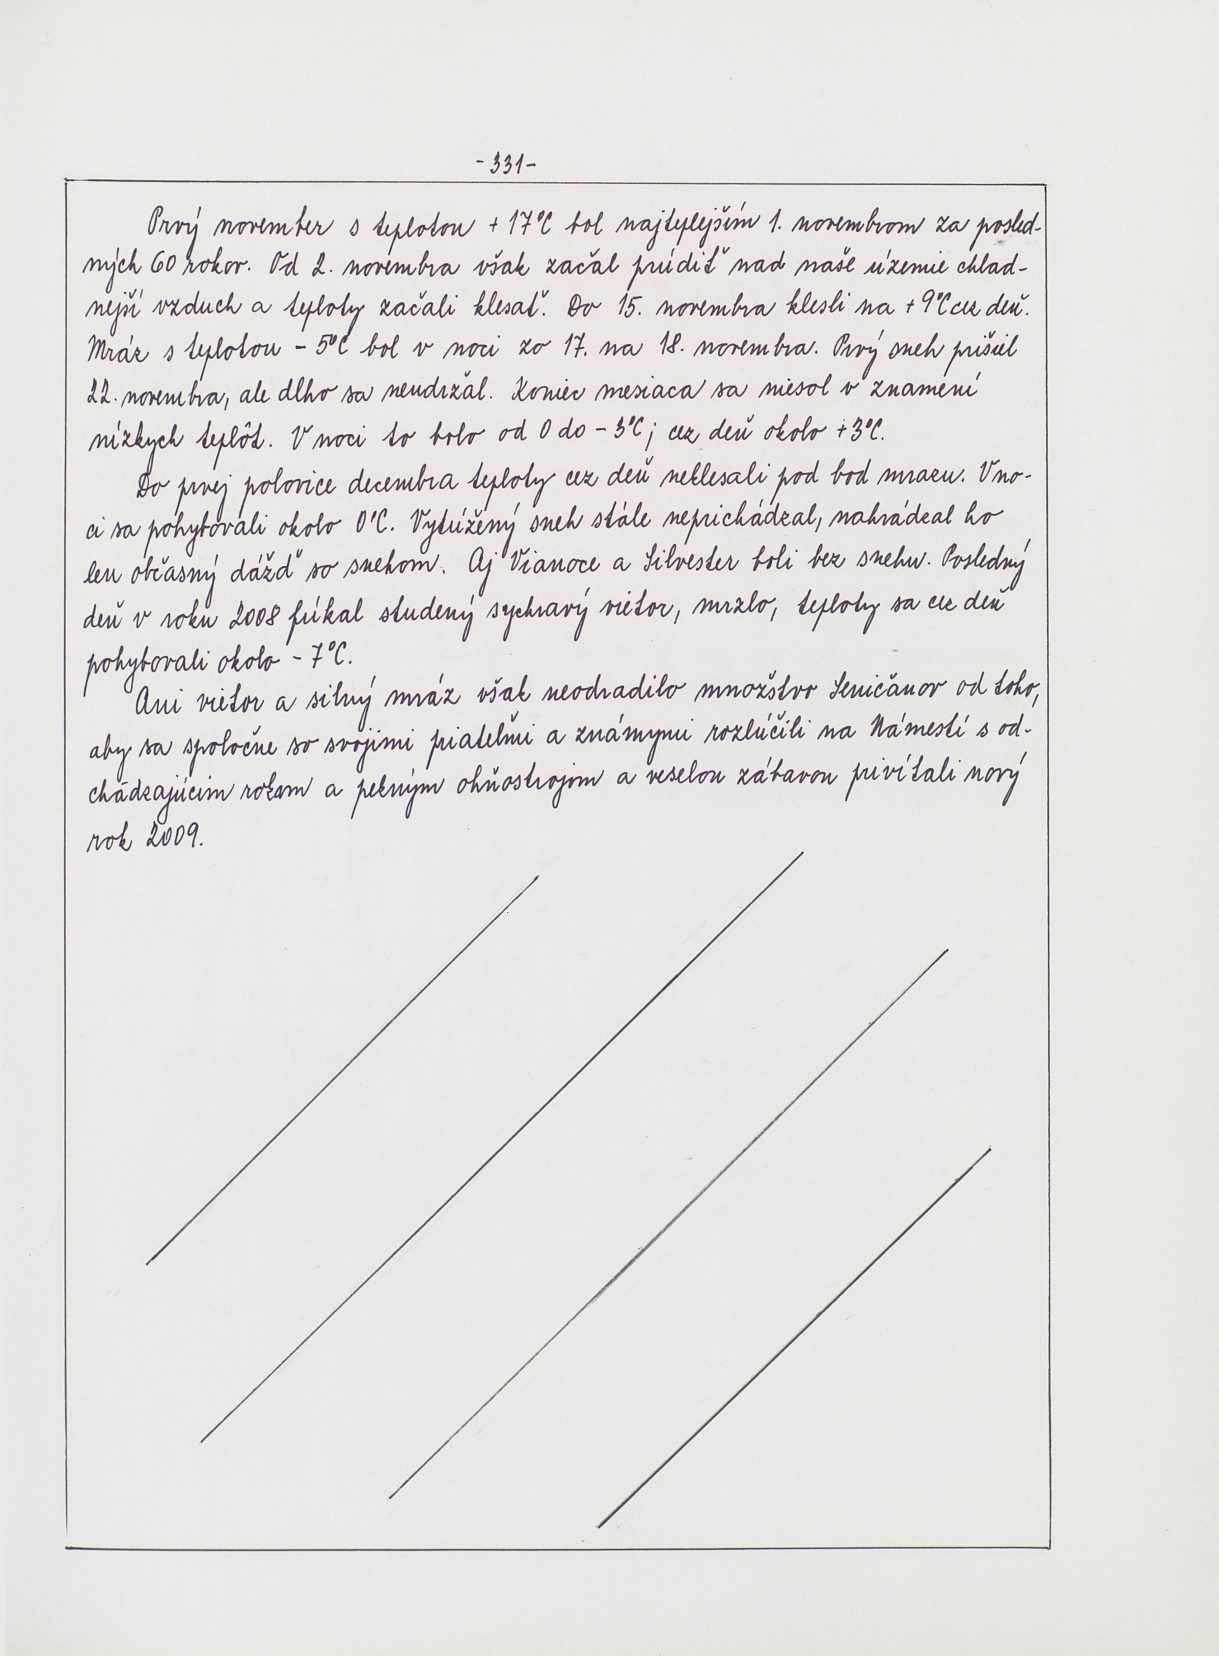 -331-
Prvý november s teplotou +17°C bol najteplejším 1. novembrom za posled-
ných 60 rokov. Od 2. novembra však začal prúdiť nad naše územie chlad-
nejší vzduch a teploty začali klesať. Do 15. novembra klesli na +9°C cez deň.
Mráz s teplotou -5°C bol v noci zo 17. na 18. novembra. Prvý sneh prišiel
22. novembra, ale dlho sa neudržal. Koniec mesiaca sa niesol v znamení
nízkych teplôt. V noci to bolo od 0 do -3°C; cez deň okolo +3°C.
Do prvej polovice decembra teploty cez deň neklesali pod bod mrazu. V no-
ci sa pohybovali okolo 0°C. Vytúžený sneh stále neprichádzal, nahrádzal ho
len občasný dážď so snehom. Aj Vianoce a Silvester boli bez snehu. Posledný
deň v roku 2008 fúkal studený sychravý vietor, mrzlo, teploty sa cez deň
pohybovali okolo -7°C.
Ani vietor a silný mráz však neodradilo množstvo Seničanov od toho,
aby sa spoločne so svojimi priateľmi a známymi rozlúčili na Námestí s od-
chádzajúcim rokom a pekným ohňostrojom a veselou zábavou privítali nový
rok 2009.